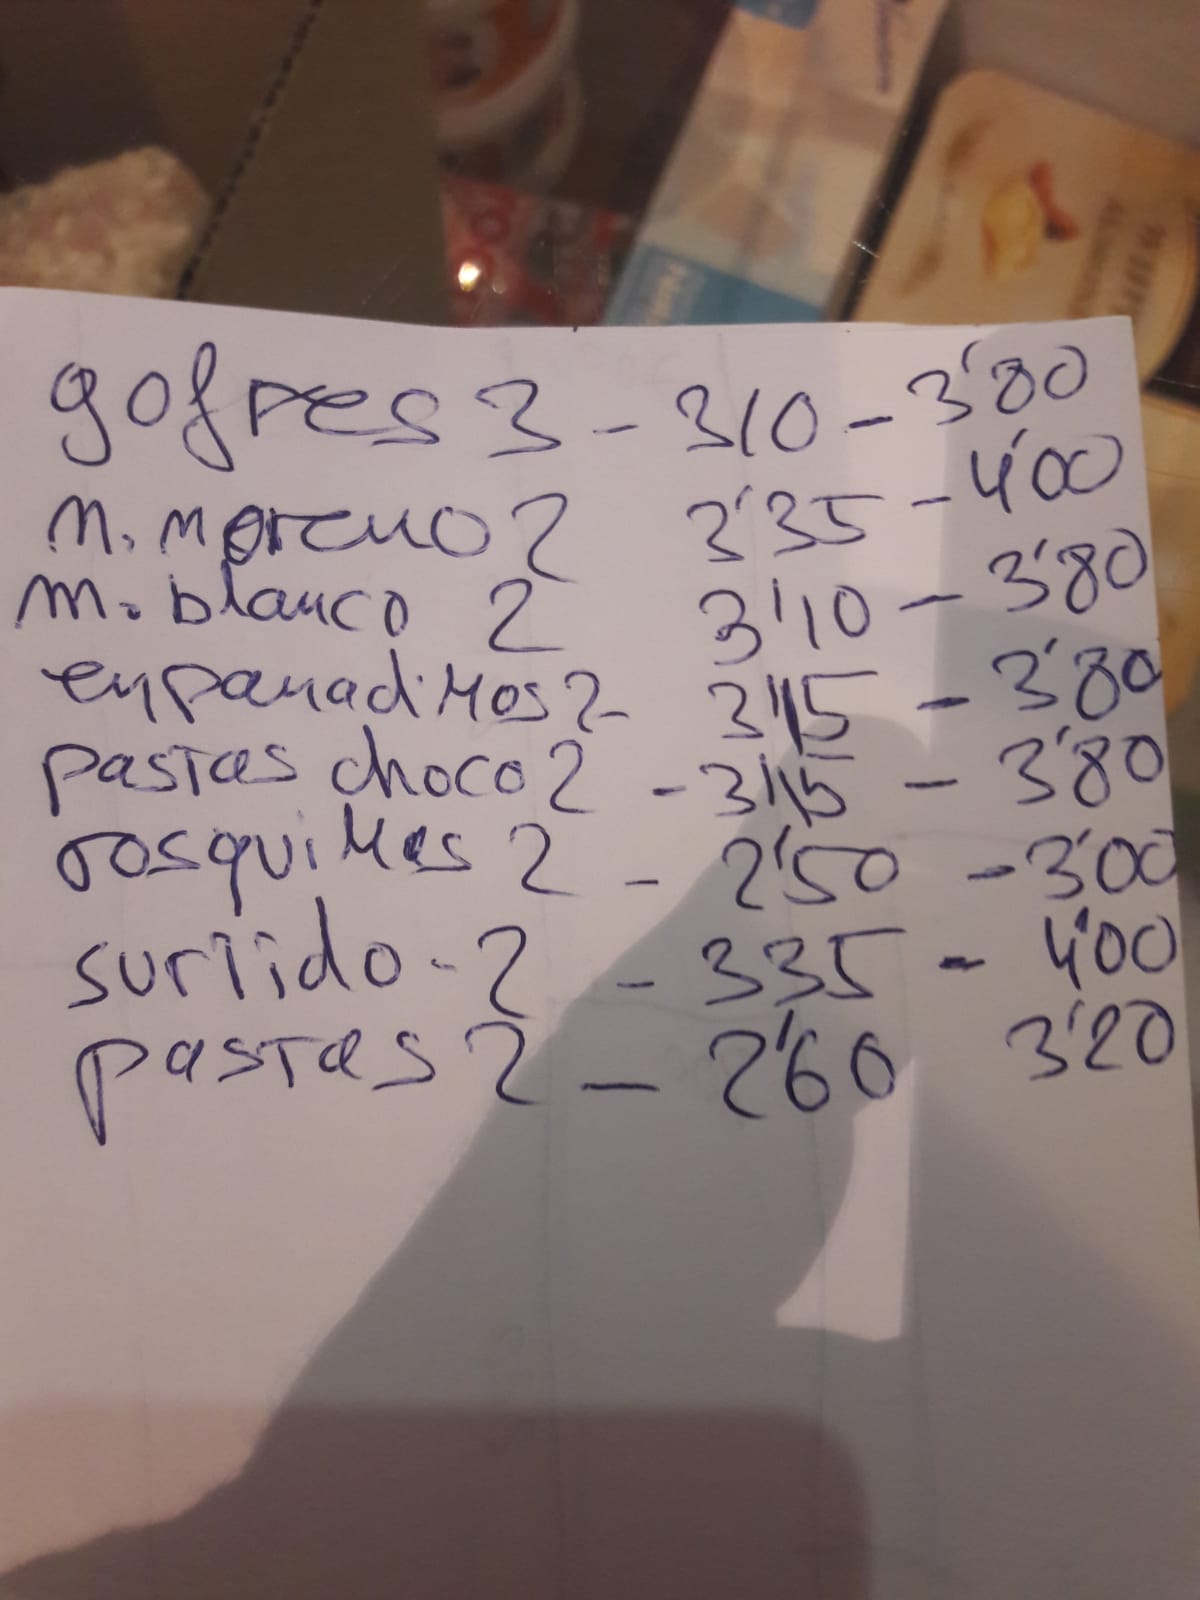 gofres 3 - 310 - 3'80
m. moreno 2 3'35 - 4'00
m. blanco 2 3'10 - 3'80
enpanadillos 2 3'15 - 3'80
pastas choco 2 - 3'15 - 3'80
rosquillas 2 - 2'50 - 3'00
surtido - 2 - 335 - 4'00
pastas 2 - 2'60 3'20